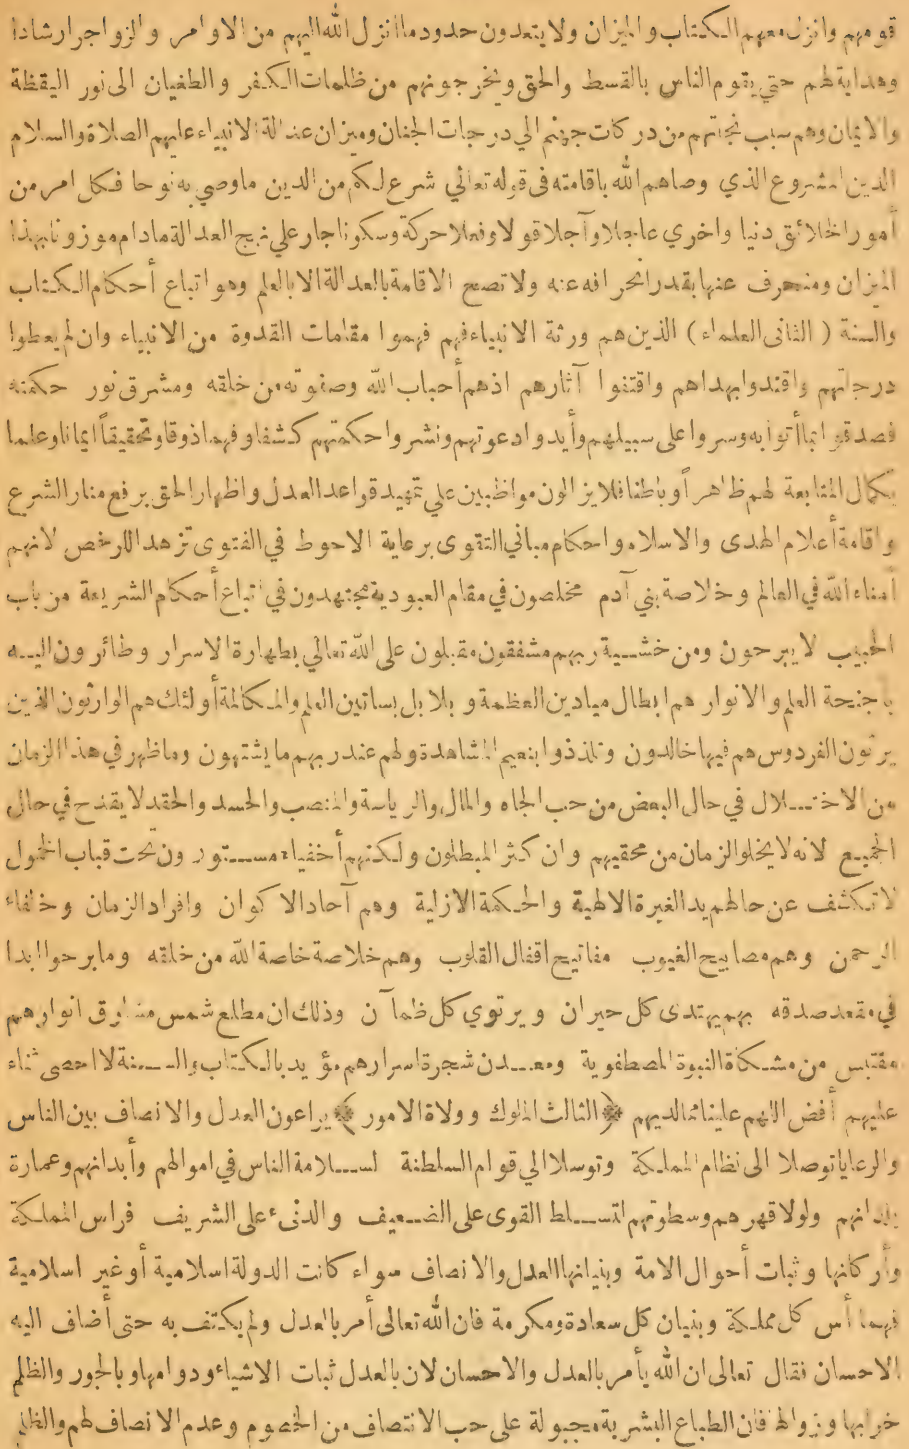 قومهم وانزل معهم الكتاب والميزان ولا يتعدون حدود ما انزل الله اليهم من الاوامر والزواجر ارشادا
وهداية لهم حتي يقوم الناس بالقسط والحق ويخرجونهم من ظلمات الكفر والطغيان الى نور اليقظة
والايمان وهم سبب نجاتهم من دركات جهنم الي درجات الجنان وميزان عدالة الانبياء عليهم الصلاة والسلام
الدين المشروع الذي وصاهم الله باقامته فى قوله تعالي شرع لكم من الدين ما وصي به نوحا فكل امر من
أمور الخلائق دنيا واخري عاجلا وآجلا قولا وفعلا حركة وسكونا جار علي نهج العدالة مادام موزونا بهذا
الميزان ومنحرف عنها بقدر انحرافه عنه ولا تصح الاقامة بالعدالة الا بالعلم وهو اتباع أحكام الكتاب
والسنة ( الثانى العلماء ) الذين هم ورثة الانبياء فهم فهموا مقامات القدوة من الانبياء وان لم يعطوا
درجاتهم واقتدوا بهداهم واقتفوا آثارهم اذ هم أحباب الله وصفوته من خلقه ومشرق نور حكمته
فصدقوا بما أتوا به وسروا على سبيلهم وأيدوا دعوتهم ونشروا حكمتهم كشفا وفهما ذوقا وتحقيقاً ايمانا وعلما
بكمال المتابعة لهم ظاهراً وباطنا فلا يزالون مواظبين علي تمهيد قواعد العدل واظهار الحق برفع منار الشرع
واقامة أعلام الهدى والاسلام واحكام مباني التقوى برعاية الاحوط في الفتوى تزهدا للرخص لانهم
أمناء الله في العالم وخلاصة بني آدم مخلصون في مقام العبودية مجتهدون في اتباع أحكام الشريعة من باب
الحبيب لا يبرحون ومن خشية ربهم مشفقون مقبلون على الله تعالي بطهارة الاسرار وطائرون اليه
باجنحة العلم والانوار هم ابطال ميادين العظمة وبلابل بساتين العلم والمكالمة أولئك هم الوارثون الذين
يرثون الفردوس هم فيها خالدون وتلذذوا بنعيم المشاهدة ولهم عند ربهم ما يشتهون وما ظهر في هذا الزمان
من الاختلال في حال البعض من حب الجاه والمال والرياسة والمنصب والحسد والحقد لا يقدح في حال
الجميع لانه لا يخلو الزمان من محقيهم وان كثر المبطلون ولكنهم أخفياء مستورون تحت قباب الخمول
لا تكشف عن حالهم يد الغيرة الالهية والحكمة الازلية وهم آحاد الاكوان وافراد الزمان وخلفاء
الرحمن وهم مصابيح الغيوب مفاتيح اقفال القلوب وهم خلاصة خاصة الله من خلقه وما برحوا ابدا
في مقعد صدقه بهم يهتدى كل حيران ويرتوي كل ظمآن وذلك ان مطلع شمس مشارق انوارهم
مقتبس من مشكاة النبوة المصطفوية ومعدن شجرة اسرارهم مؤيد بالكتاب والسنة لا احصى ثناء
عليهم أفض اللهم علينا مما لديهم ﴿ الثالث الملوك وولاة الامور ﴾ يراعون العدل والانصاف بين الناس
والرعايا توصلا الى نظام المملكة وتوسلا الي قوام السلطنة لسلامة الناس في اموالهم وأبدانهم وعمارة
بلدانهم ولولا قهرهم وسطوتهم لتسلط القوى على الضعيف والدنىء على الشريف فراس المملكة
وأركانها وثبات أحوال الامة وبنيانها العدل والانصاف سواء كانت الدولة اسلامية أو غير اسلامية
فهما أس كل مملكة وبنيان كل سعادة ومكرمة فان الله تعالى أمر بالعدل ولم يكتف به حتى أضاف اليه
الاحسان فقال تعالى ان الله يأمر بالعدل والاحسان لان بالعدل ثبات الاشياء ودوامها وبالجور والظلم
خرابها وزوالها فان الطباع البشرية مجبولة على حب الانتصاف من الخصوم وعدم الانصاف لهم والظلم